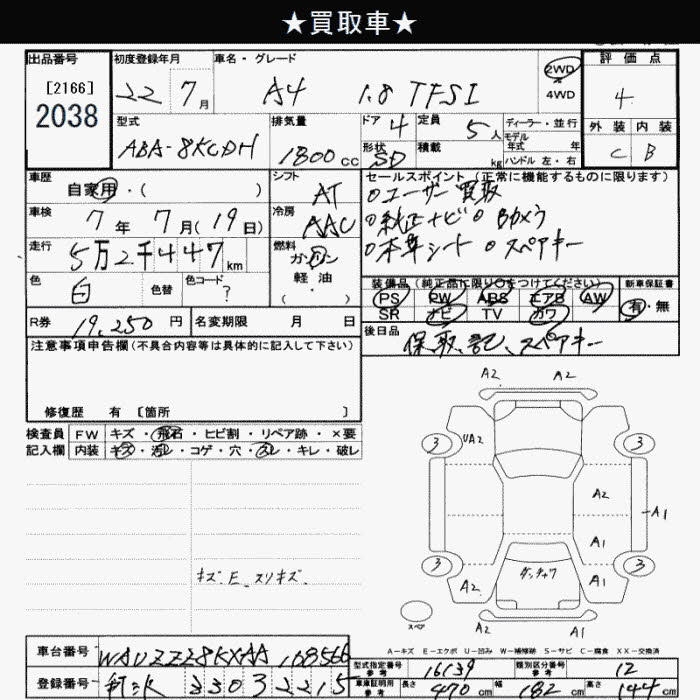 ★買取車★
出品番号
[2166]
2038
初度登録年月
22 7 月
車名・グレード
A4 1.8 TFSI
2WD
4WD
評価点
4
外装 内装
C B
型式
ABA-8KCDH
排気量
1800 cc
ドア 4
形状 SD
定員 5 人
積載 kg
ディーラー・並行
モデル
年式 年
ハンドル 左・右
車歴
自家用・( )
シフト
AT
車検
7 年 7 月 (19 日)
冷房
AAC
走行
5万2千447 km
燃料
ガソリン
軽油
( ・ )
色
白
色替
色コード
?
R券
19,250 円
名変期限 月 日
セールスポイント (正常に機能するものに限ります)
○ユーザー買取
○純正ナビ○Bカメラ
○本革シート ○スペアキー
装備品(純正品に限り○をつけてください)
新車保証書
PS PW ABS エアB AW
SR ナビ TV カワ
有・無
後日品
保、取、記、スペアキー
注意事項申告欄(不具合内容等は具体的に記入して下さい)
修復歴 有 [箇所 ]
検査員
記入欄
FW キズ・飛石・ヒビ割・リペア跡・×要
内装 キズ・汚レ・コゲ・穴・スレ・キレ・破レ
キズ.E.スリキズ.
A2 A2
3 UA2 3
A2
A1
A1
3 A2 ダッチャク A1 3
スペア
A2 A1
A-キズ E-エクボ U-凹み W-補修跡 S-サビ C-腐食 XX-交換済
車台番号
WAUZZZ8KXAA108566
登録番号
3303 2215
型式指定番号
参考
16139
類別区分番号
参考
12
車庫証明用
参考
長さ 470 cm 幅 182 cm 高さ 144 cm